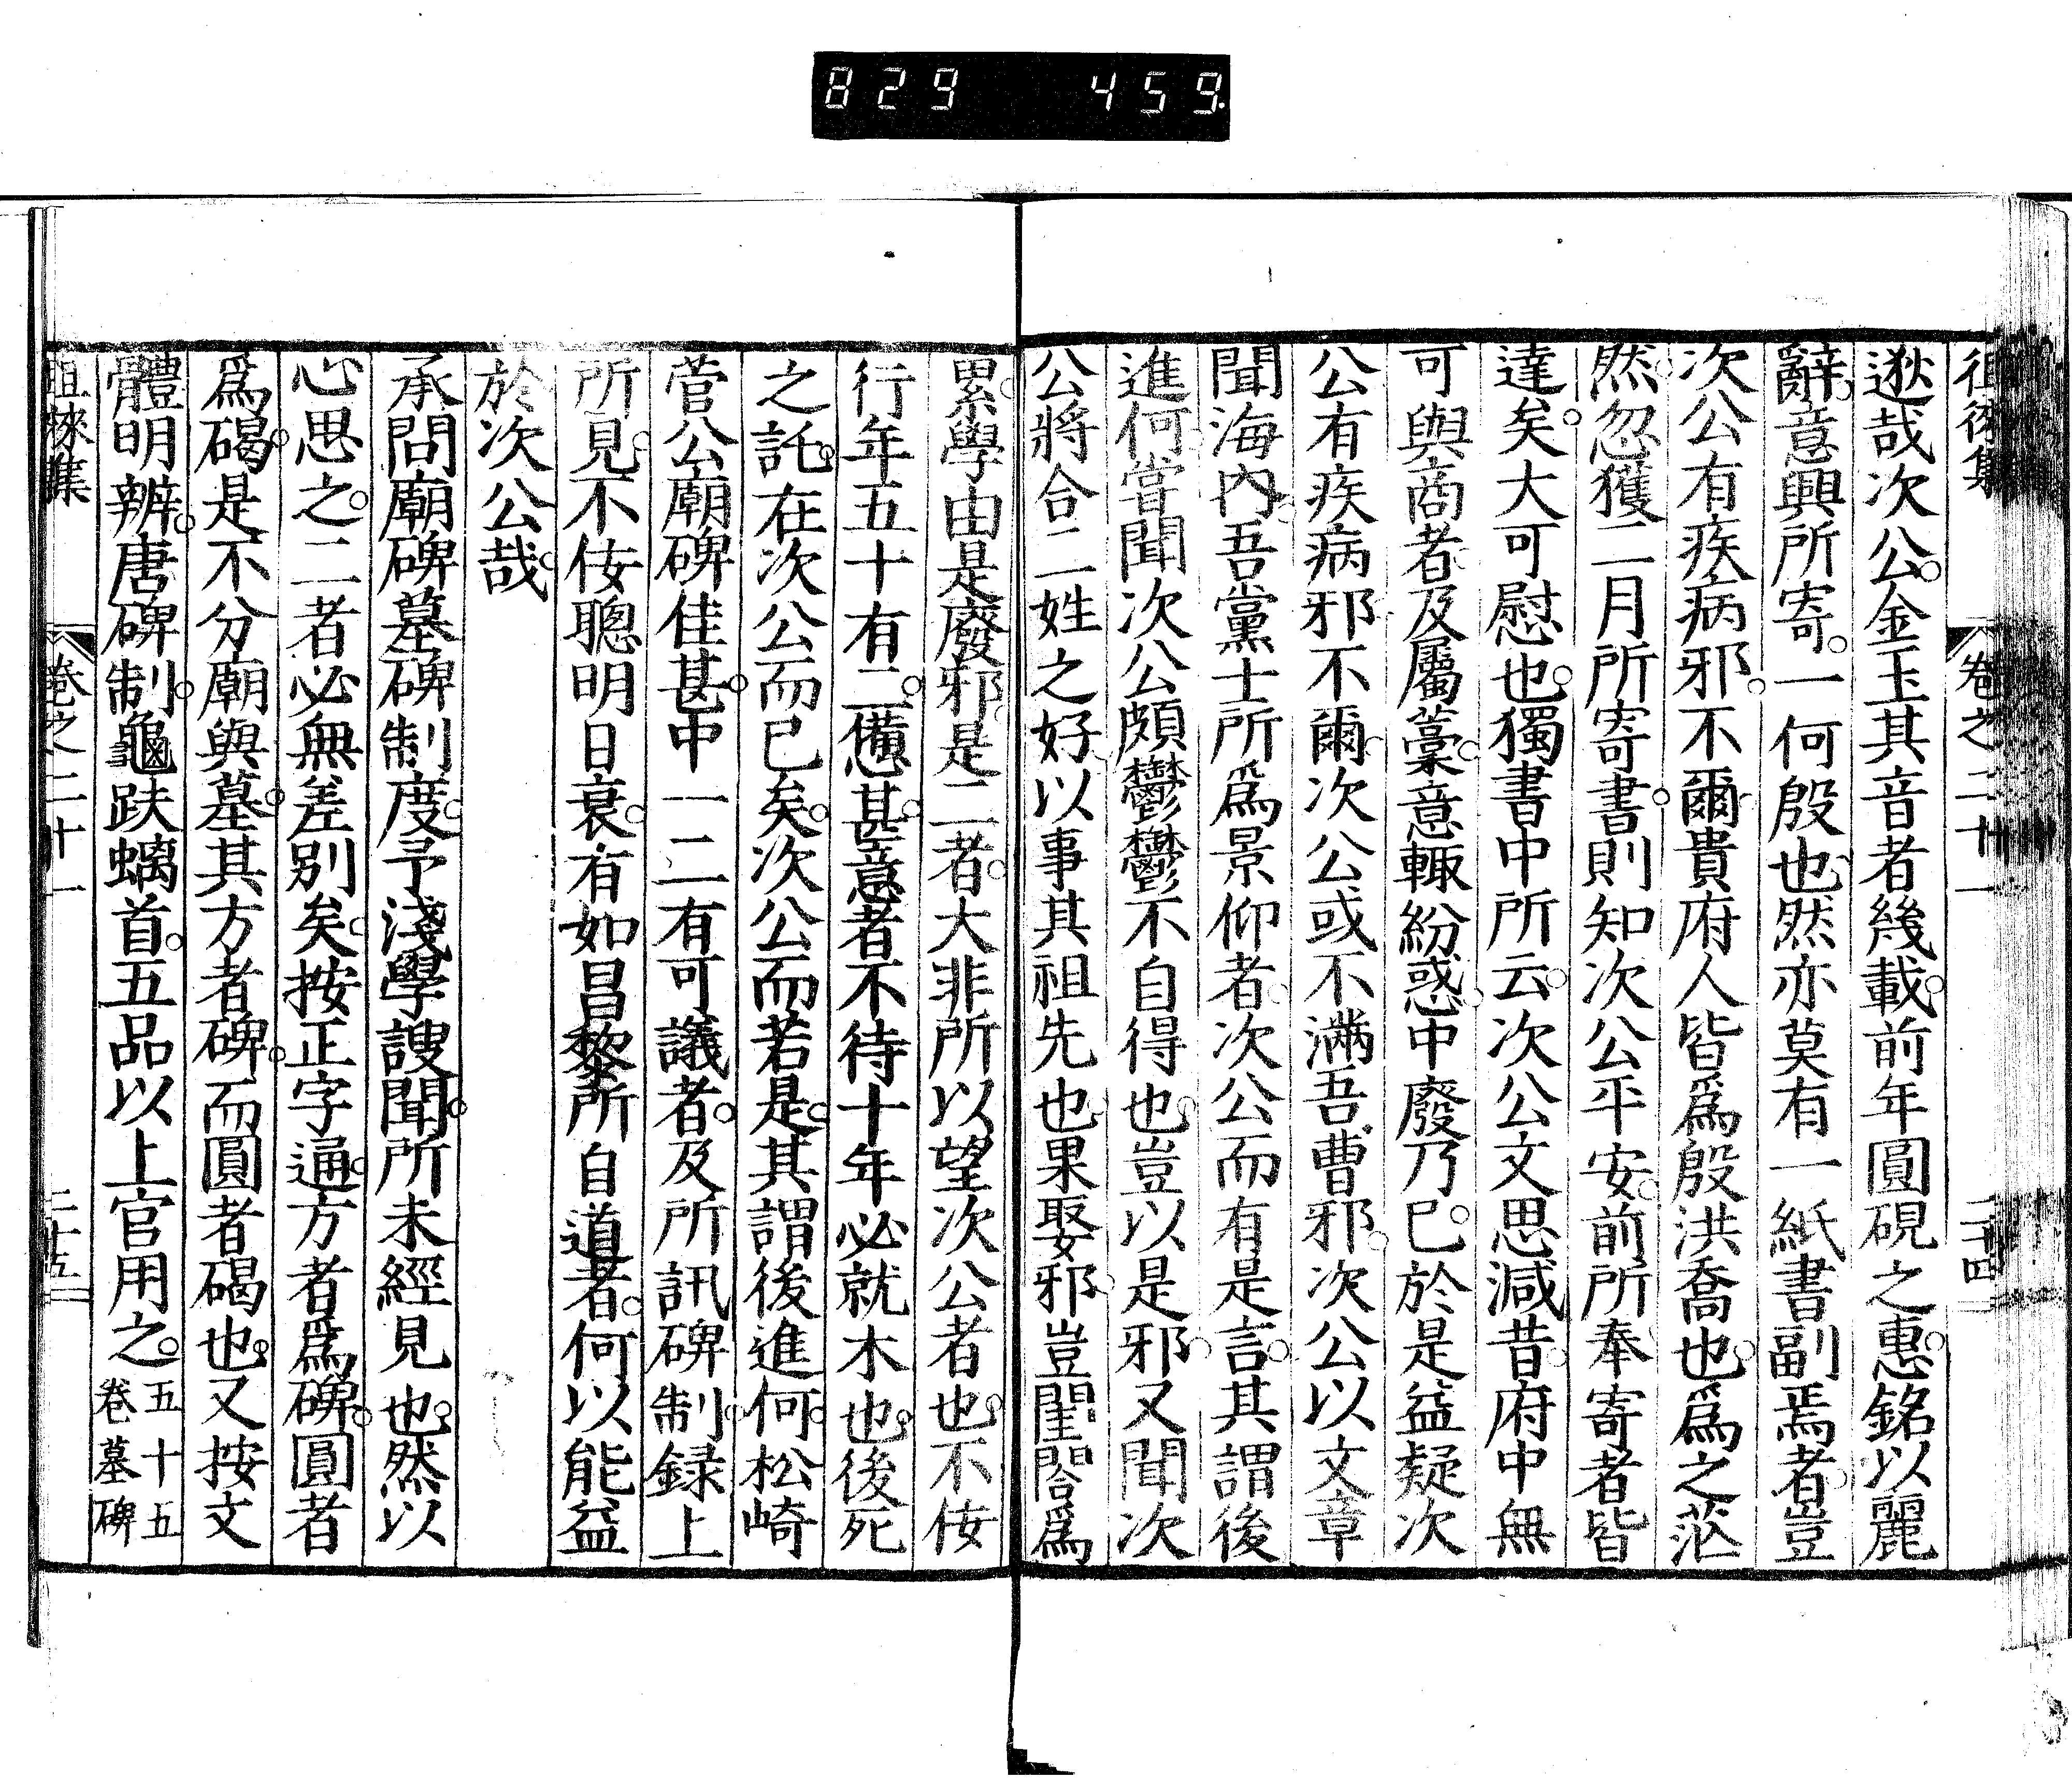 829 459.
徂徠集 卷之二十一 二十四
逖哉次公。金玉其音者幾載。前年圓硯之惠。銘以麗
辭。意興所寄。一何殷也。然亦莫有一紙書副焉者。豈
次公有疾病邪。不爾貴府人皆爲殷洪喬也。爲之茫
然。忽獲二月所寄書。則知次公平安。前所奉寄者皆
達矣。大可慰也。獨書中所云。次公文思減昔。府中無
可與商者。及屬藁。意輙紛惑。中廢乃已。於是益疑次
公有疾病邪。不爾。次公或不滿吾曹邪。次公以文章
聞海內。吾黨士所爲景仰者。次公而有是言。其謂後
進何。嘗聞次公頗鬱鬱不自得也。豈以是邪。又聞次
公將合二姓之好。以事其祖先也。果娶邪。豈閨閤爲
累。學由是廢邪。是二者。大非所以望次公者也。不佞
行年五十有二。憊甚。意者不待十年必就木也。後死
之託。在次公而已矣。次公而若是。其謂後進何。松崎
菅公廟碑佳甚。中一二有可議者。及所訊碑制。録上
所見。不佞聰明日衰。有如昌黎所自道者。何以能益
於次公哉。
承問廟碑墓碑制度。予淺學謏聞。所未經見也。然以
心思之。二者必無差別矣。按正字通。方者爲碑。圓者
爲碣。是不分廟與墓。其方者碑。而圓者碣也。又按文
體明辨。唐碑制。龜趺螭首。五品以上官用之。五十五卷墓碑
徂徠集 卷之二十一 二十五